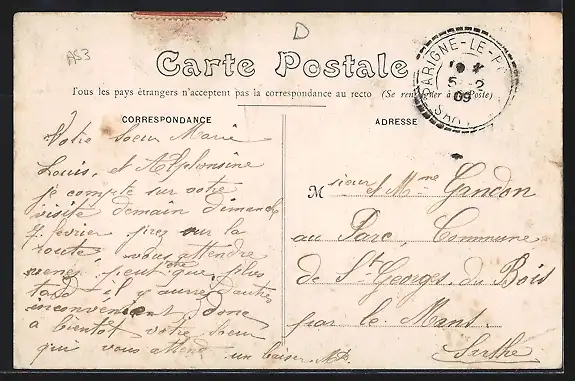 AS3
D
Carte Postale
Tous les pays étrangers n'acceptent pas la correspondance au recto (Se renseigner à la Poste)
PARIGNE-LE-P
5-2
09
SAR
CORRESPONDANCE
ADRESSE
Votre soeur Marie
Louis, et Alphonsine
je compte sur votre
visite demain dimanche
7 février, sur la
route, vous attendre
venez peut que plus
tard il y aura d'autres
inconvénient donc
a bientôt votre soeur
qui vous attend un baiser
Monsieur et Mme Gandon
au Parc, Commune
de St Georges du Bois
par le Mans.
Sarthe